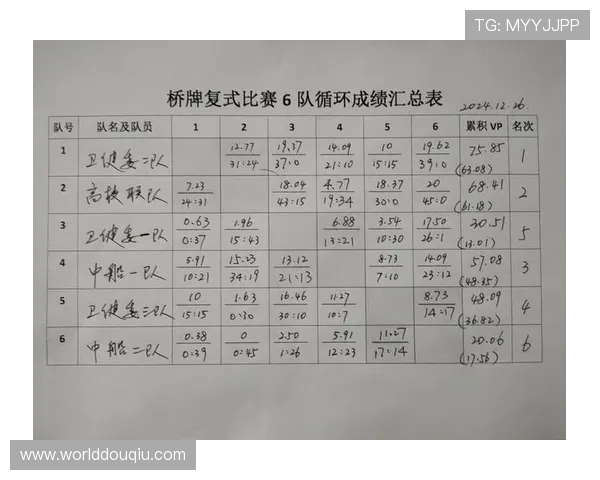 TG: MYYJJPP
桥牌复式比赛 6 队循环成绩汇总表
2024.12.26.
队号 队名及队员 1 2 3 4 5 6 累积 VP 名次
1 卫健委二队 12.77 19.37 14.09 10 19.62 75.85 1
31:24 37:0 21:10 15:15 39:0 (63.08)
2 高校联队 7.23 18.04 4.77 18.37 20 68.41 2
24:31 43:15 19:34 30:0 45:0 (61.18)
3 卫健委一队 0.63 1.96 6.88 3.54 17.50 30.51 5
0:37 15:43 13:21 10:30 26:1 (13.01)
4 中船一队 5.91 15.23 13.12 8.73 14.09 57.08 3
10:21 34:19 21:13 7:10 23:12 (48.35)
5 卫健委三队 10 1.63 16.46 11.27 8.73 48.09 4
15:15 0:30 30:10 10:7 14:17 (36.82)
6 中船二队 0.38 0 2.50 5.91 11.27 20.06 6
0:39 0:45 1:26 12:23 17:14 (17.56)
www.worlddouqiu.com